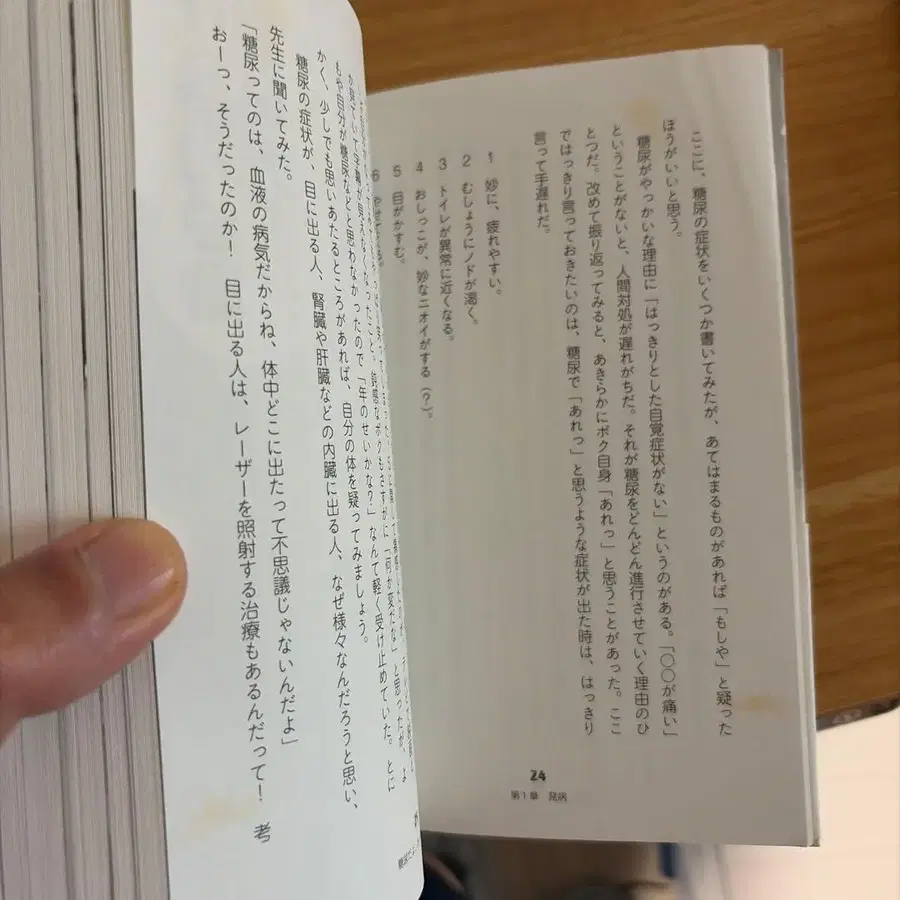 ここに、糖尿の症状をいくつか書いてみたが、あてはまるものがあれば「もしや」と疑った
ほうがいいと思う。
糖尿がやっかいな理由に「はっきりとした自覚症状がない」というのがある。「〇〇が痛い」
ということがないと、人間対処が遅れがちだ。それが糖尿をどんどん進行させていく理由のひ
とつだ。改めて振り返ってみると、あきらかにボク自身「あれっ」と思うことがあった。ここ
ではっきり言っておきたいのは、糖尿で「あれっ」と思うような症状が出た時は、はっきり
言って手遅れだ。
1 妙に、疲れやすい。
2 むしょうにノドが渇く。
3 トイレが異常に近くなる。
4 おしっこが、妙なニオイがする(?)。
5 目がかすむ。
6 やせてくる。
24
第1章 発病
字幕が見えなくなったこと。鈍感なボクもさすがに「何か変だな」と思ったが、よ
もや自分が糖尿などと思わなかったので「年のせいかな?」なんて軽く受け止めていた。とに
かく、少しでも思いあたるところがあれば、自分の体を疑ってみましょう。
糖尿の症状が、目に出る人、腎臓や肝臓などの内臓に出る人、なぜ様々なんだろうと思い、
先生に聞いてみた。
「糖尿ってのは、血液の病気だからね、体中どこに出たって不思議じゃないんだよ」
おーっ、そうだったのか! 目に出る人は、レーザーを照射する治療もあるんだって! 考